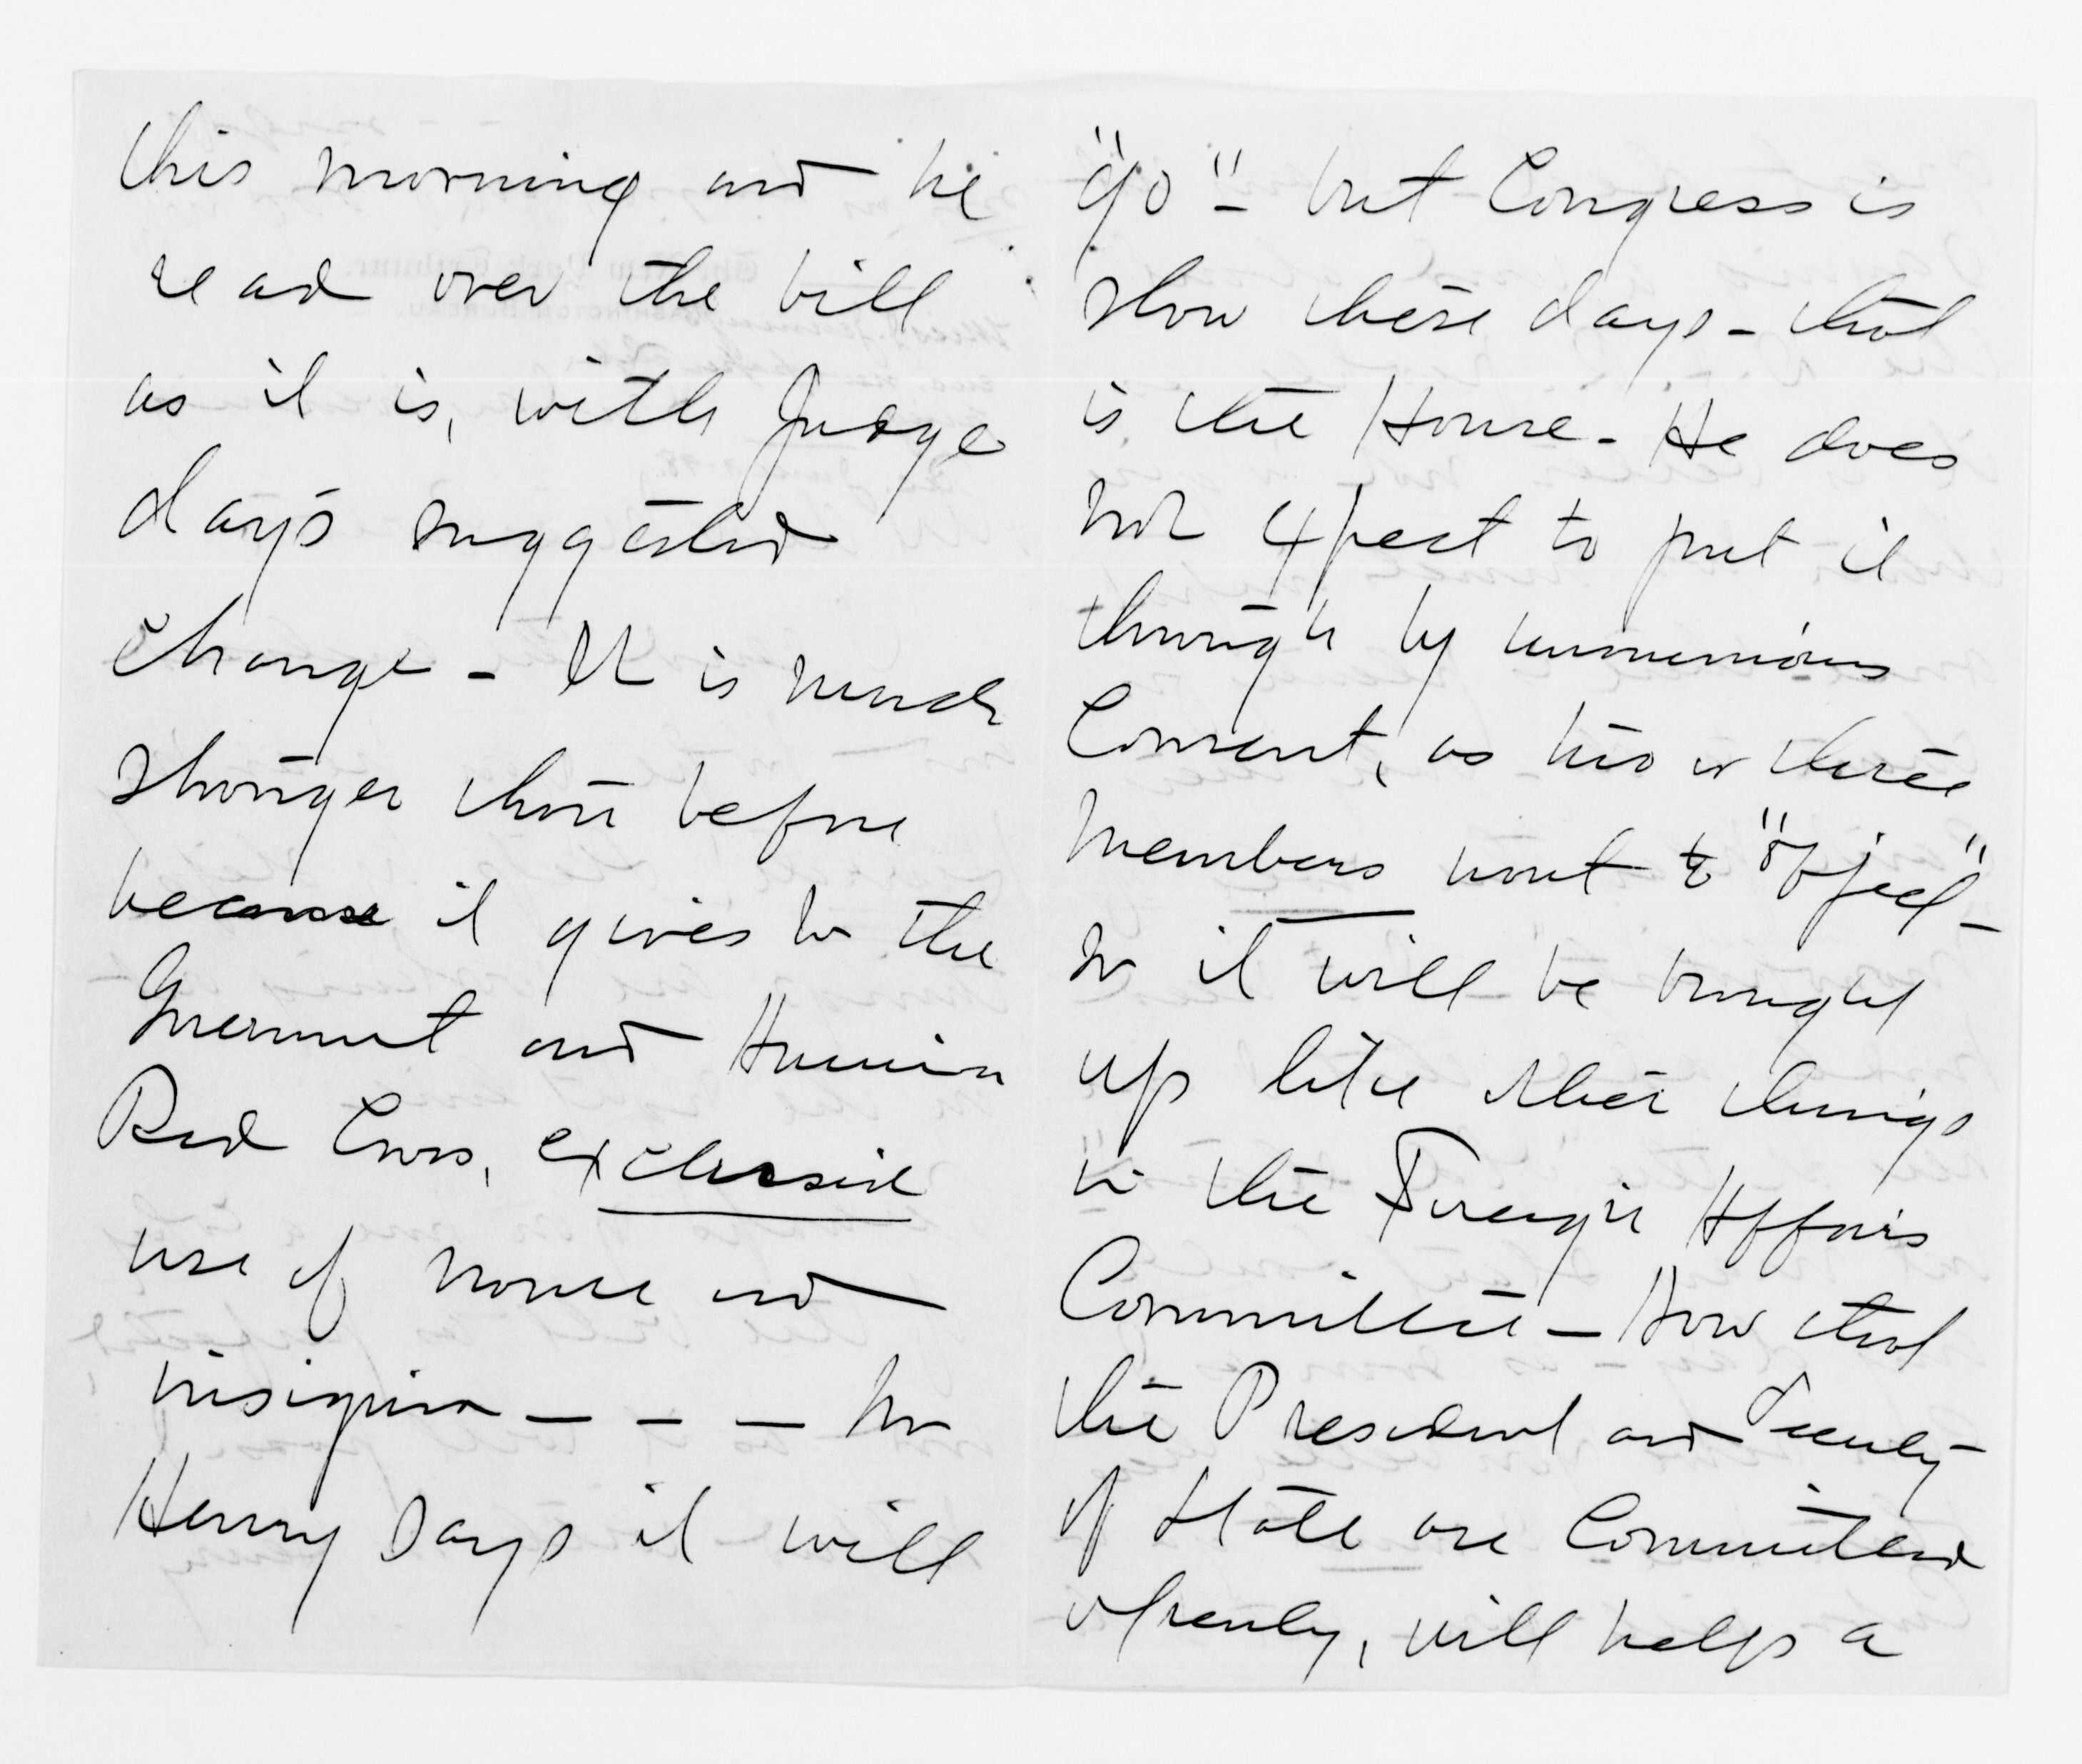 this morning and he
read over the bill
as it is, with Judge
Day's suggested
change - It is much
stronger than before
because it gives to the
Government and American
Red Cross, exclusive
use of name and
insignia - - - Mr
Henry says it will
"go" - but Congress is
slow these days - that
is the House - He does
not expect to put it
through by unanimous
Consent, as two or three
members want to "object" -
so it will be brought
up like other things
in the Foreign Affairs
Committee - Now that
the President and Secretary
of State are committed
openly, will help a